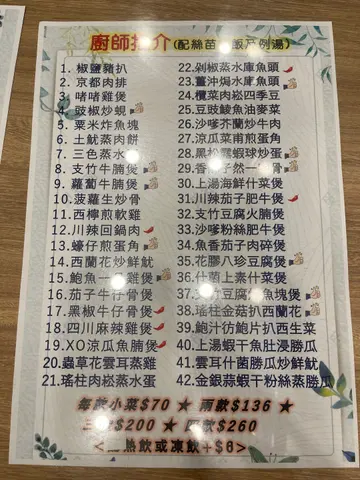 廚師推介(配絲苗白飯及例湯)
1. 椒鹽豬扒
2. 京都肉排
3. 啫啫雞煲
4. 豉椒炒蜆
5. 粟米炸魚塊
6. 土魷蒸肉餅
7. 三色蒸水
8. 支竹牛腩煲
9. 蘿蔔牛腩煲
10. 菠蘿生炒骨
11. 西檸煎軟雞
12. 川辣回鍋肉
13. 蠔仔煎蛋角
14. 西蘭花炒鮮魷
15. 鮑魚一 雞煲
16. 茄子牛仔骨煲
17. 黑椒牛仔骨煲
18. 四川麻辣雞煲
19. XO涼瓜魚腩煲
20. 蟲草花雲耳蒸雞
21. 瑤柱肉崧蒸水蛋
22. 剁椒蒸水庫魚頭
23. 薑沖焗水庫魚頭
24. 欖菜肉崧四季豆
25. 豆豉鯪魚油麥菜
26. 沙爹芥蘭炒牛肉
27. 涼瓜菜甫煎蛋角
28. 黑松露蝦球炒蛋
29. 香 子然一 骨
30. 上湯海鮮什菜煲
31. 川辣茄子肥牛煲
32. 支竹豆腐火腩煲
33. 沙爹粉絲肥牛煲
34. 魚香茄子肉碎煲
35. 花膠八珍豆腐煲
36. 什菌上素什菜煲
37. 竹豆腐 魚塊煲
38. 瑤柱金菇扒西蘭花
39. 鮑汁彷鮑片扒西生菜
40. 上湯蝦干魚肚浸勝瓜
41. 雲耳什菌勝瓜炒鮮魷
42. 金銀蒜蝦干粉絲蒸勝瓜
每款小菜$70 ★ 兩款$136 ★
三款$200 ★ 四款$260
<配熱飲或凍飲+$6>